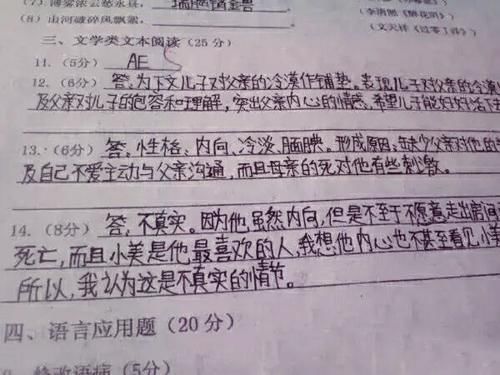 (7) 薄雾浓云愁永昼, 瑞脑销金兽
(8) 山河破碎风飘絮,
(李清照《醉花阴》)
(文天祥《过零丁洋》)
三、文学类文本阅读(25分)
11. (5分) AE
12. (6分) 答,为下文儿子对父亲的冷漠作铺垫。表现儿子对父亲的冷漠
及父亲对儿子的包容和理解,突出父亲内心的情感、希望儿子能好好活下
13. (6分) 答,性格、内向、冷淡、腼腆。形成原因:缺少父亲对他的
及自己不爱主动与父亲沟通,而且母亲的死对他有些刺激。
14. (8分) 答,不真实。因为他虽然内向,但是不至于不愿意走出房间
死亡,而且小美是他最喜欢的人,我想他内心也不甚至看见小美
所以,我认为这是不真实的情节。
四、语言应用题(20分)
修改语病(5分)